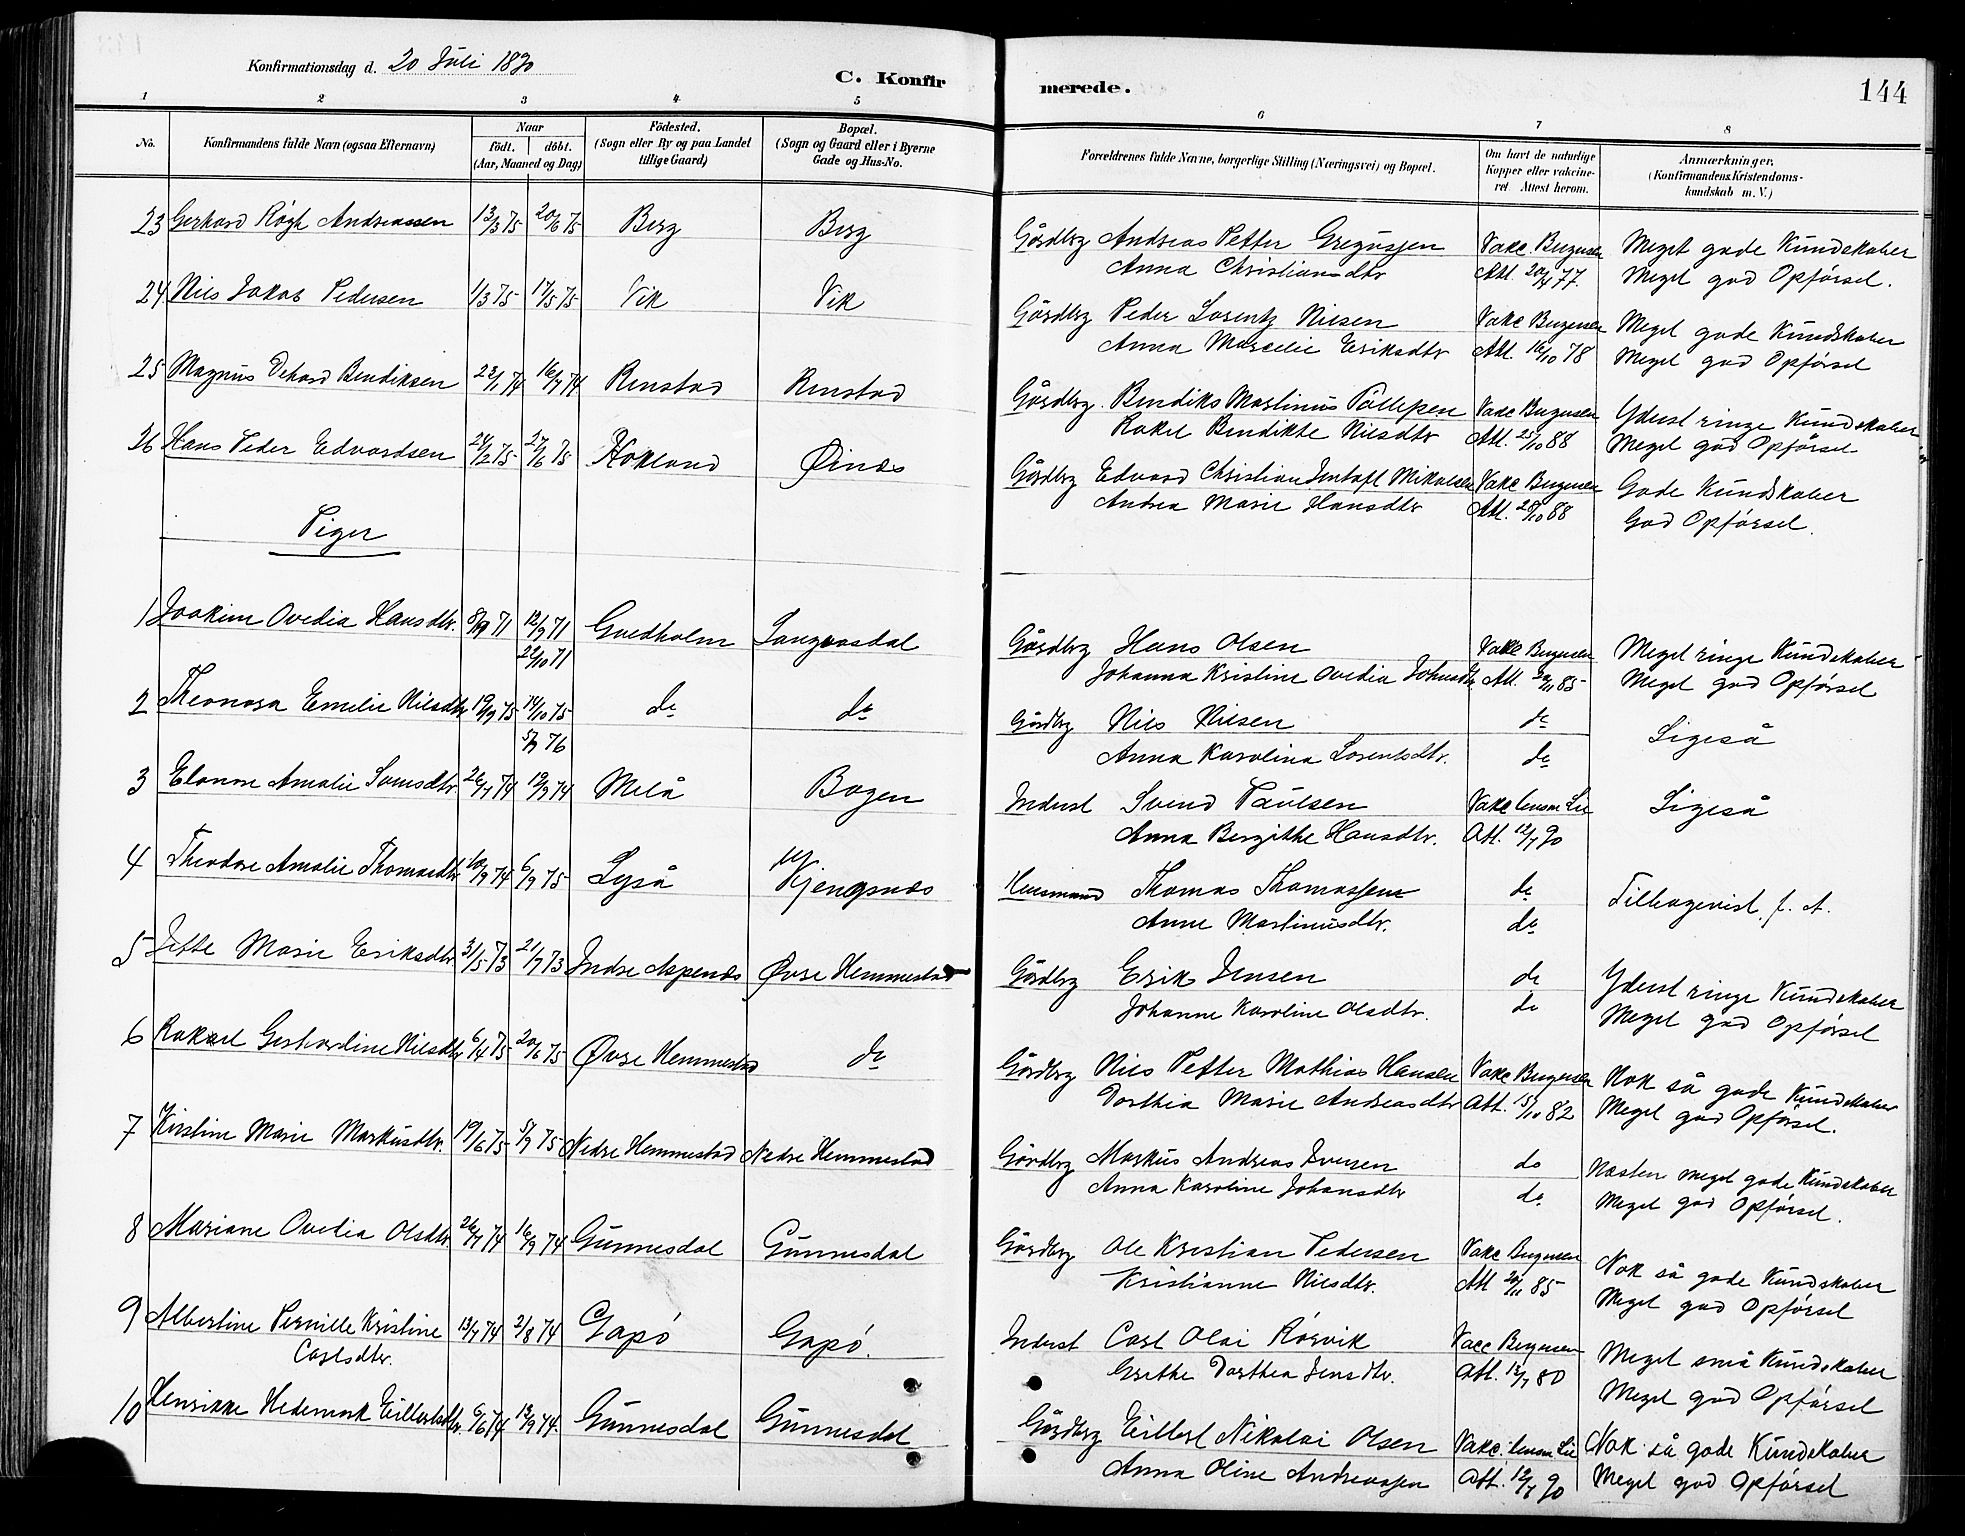 Konfirmationsdag d. 20 Juli 1890
C. Konfirmerede.
144
1 2 3 4 5 6 7 8
No.
Konfirmandens fulde Navn (ogsaa Efternavn)
Naar
födt. döbt.
(Aar, Maaned og Dag)
Födested.
(Sogn eller By og paa Landet
tillige Gaard)
Bopæl.
(Sogn og Gaard eller i Byerne
Gade og Hus-No.
Forældrenes fulde Navne, borgerlige Stilling (Næringsvei) og Bopæl.
Om havt de naturlige
Kopper eller vakcine-
ret. Attest herom.
Anmærkninger.
(Konfirmandens Kristendoms-
kundskab m. V.)
23 Gerhard Rögh Andreassen 13/3 75 20/6 75 Berg Berg Gårdbrg Andreas Petter Gregusjen Vakc Burgesen Meget gode Kundskaber
Anna Christiansdtr Att. 20/4 77. Meget god Opførsel.
24 Nils Jakob Pedersen 1/3 75 17/5 75 Vik Vik Gårdbrg Peder Lorentz Nilsen Vakc Burgesen Meget gode Kundskaber
Anna Marselie Eriksdtr Att. 16/10 78 Meget god Opførsel
25 Magnus Dehard Bendiksen 23/1 74 16/7 74 Renstad Renstad Gårdbrg. Bendiks Martinus Tollefsen Vakc Burgesen Yderst ringe Kundskaber
Rakel Bendikte Nilsdtr Att. 25/10 88 Meget god Opførsel
26 Hans Peder Edvardsen 24/2 75 27/6 75 Rokland Øinæs Gårdbrg Edvard Christian Mikalsen Vakc Burgesen Gode Kundskaber
Andrea Marie Hansdtr Att. 28/10 88 God Opførsel.
Piger
1 Joakim Ovedia Hansdtr. 8/9 71 12/9 71 Gredholm Langvasdal Gårdbrg Hans Olsen Vakc Burgesen Meget ringe Kundskaber
22/10 71 Johanna Kristine Ovedia Johnsdtr Att. 20/11 85 Meget god Opførsel
2 Theonora Emelie Nilsdtr 19/9 75 14/10 75 do do Gårdbrg Nils Nilsen do Ligeså
5/7 76 Anna Karolina Lorentsdtr. do
3 Elonore Amalie Svensdtr. 26/7 74 19/9 74 Melå Bogen Inderst Svend Paulsen Vakc lensm Lie Ligeså
Anna Bergithe Hansdtr. Att. 12/7 90
4 Theodore Amalie Thomasdtr 10/9 74 6/9 75 Lyså Kjengsnæs Husmand Thomas Thomassen do Tilbagevist f. A.
Anne Martinusdtr. do
5 Jette Marie Eriksdtr 31/5 73 21/7 73 Indre Aspenæs Øvre Hemmestad Gårdbrg Erik Jensen do Yderst ringe Kundskaber
Johanne Karoline Olsdtr. do Meget god Opførsel
6 Rakel Gerhardine Nilsdtr 6/4 75 20/6 75 Øvre Hemmestad do Gårdbrg Nils Petter Mathias Hansen Vakc Burgesen Nok så gode Kundskaber
Dorthia Marie Andreasdtr Att. 15/10 82 Meget god Opførsel.
7 Kirstine Marie Markusdtr. 19/6 75 5/9 75 Nedre Hemmestad Nedre Hemmestad Gårdbrg Markus Andreas Iversen do Næsten meget gode Kundskaber
Anna Karoline Johansdtr do Meget god Opførsel.
8 Mariane Ovedia Olsdtr. 26/7 74 16/9 74 Gunnesdal Gunnesdal Gårdbrg Ole Kristian Pedersen Vakc Burgesen Nok så gode Kundskaber
Kristianne Nilsdtr. Att 20/11 85 Meget god Opførsel
9 Albertine Pernille Kristine 13/7 74 2/8 74 Gapö Gapö. Inderst Carl Olai Rörvik Vacc Bergesen Meget små Kundskaber
Carlsdtr. Grethe Dorthea Jensdtr. Att. 12/7 80 Meget god Opførsel
10 Henrikke Hedemork Eillertsdtr. 6/6 74 13/9 74. Gunnesdal Gunnesdal Gårdbrg Eillert Nikolai Olsen Vakc. lensm Lie Nok så gode Kundskaber
Anna Oline Andreassen Att. 12/7 90 Meget god Opførsel